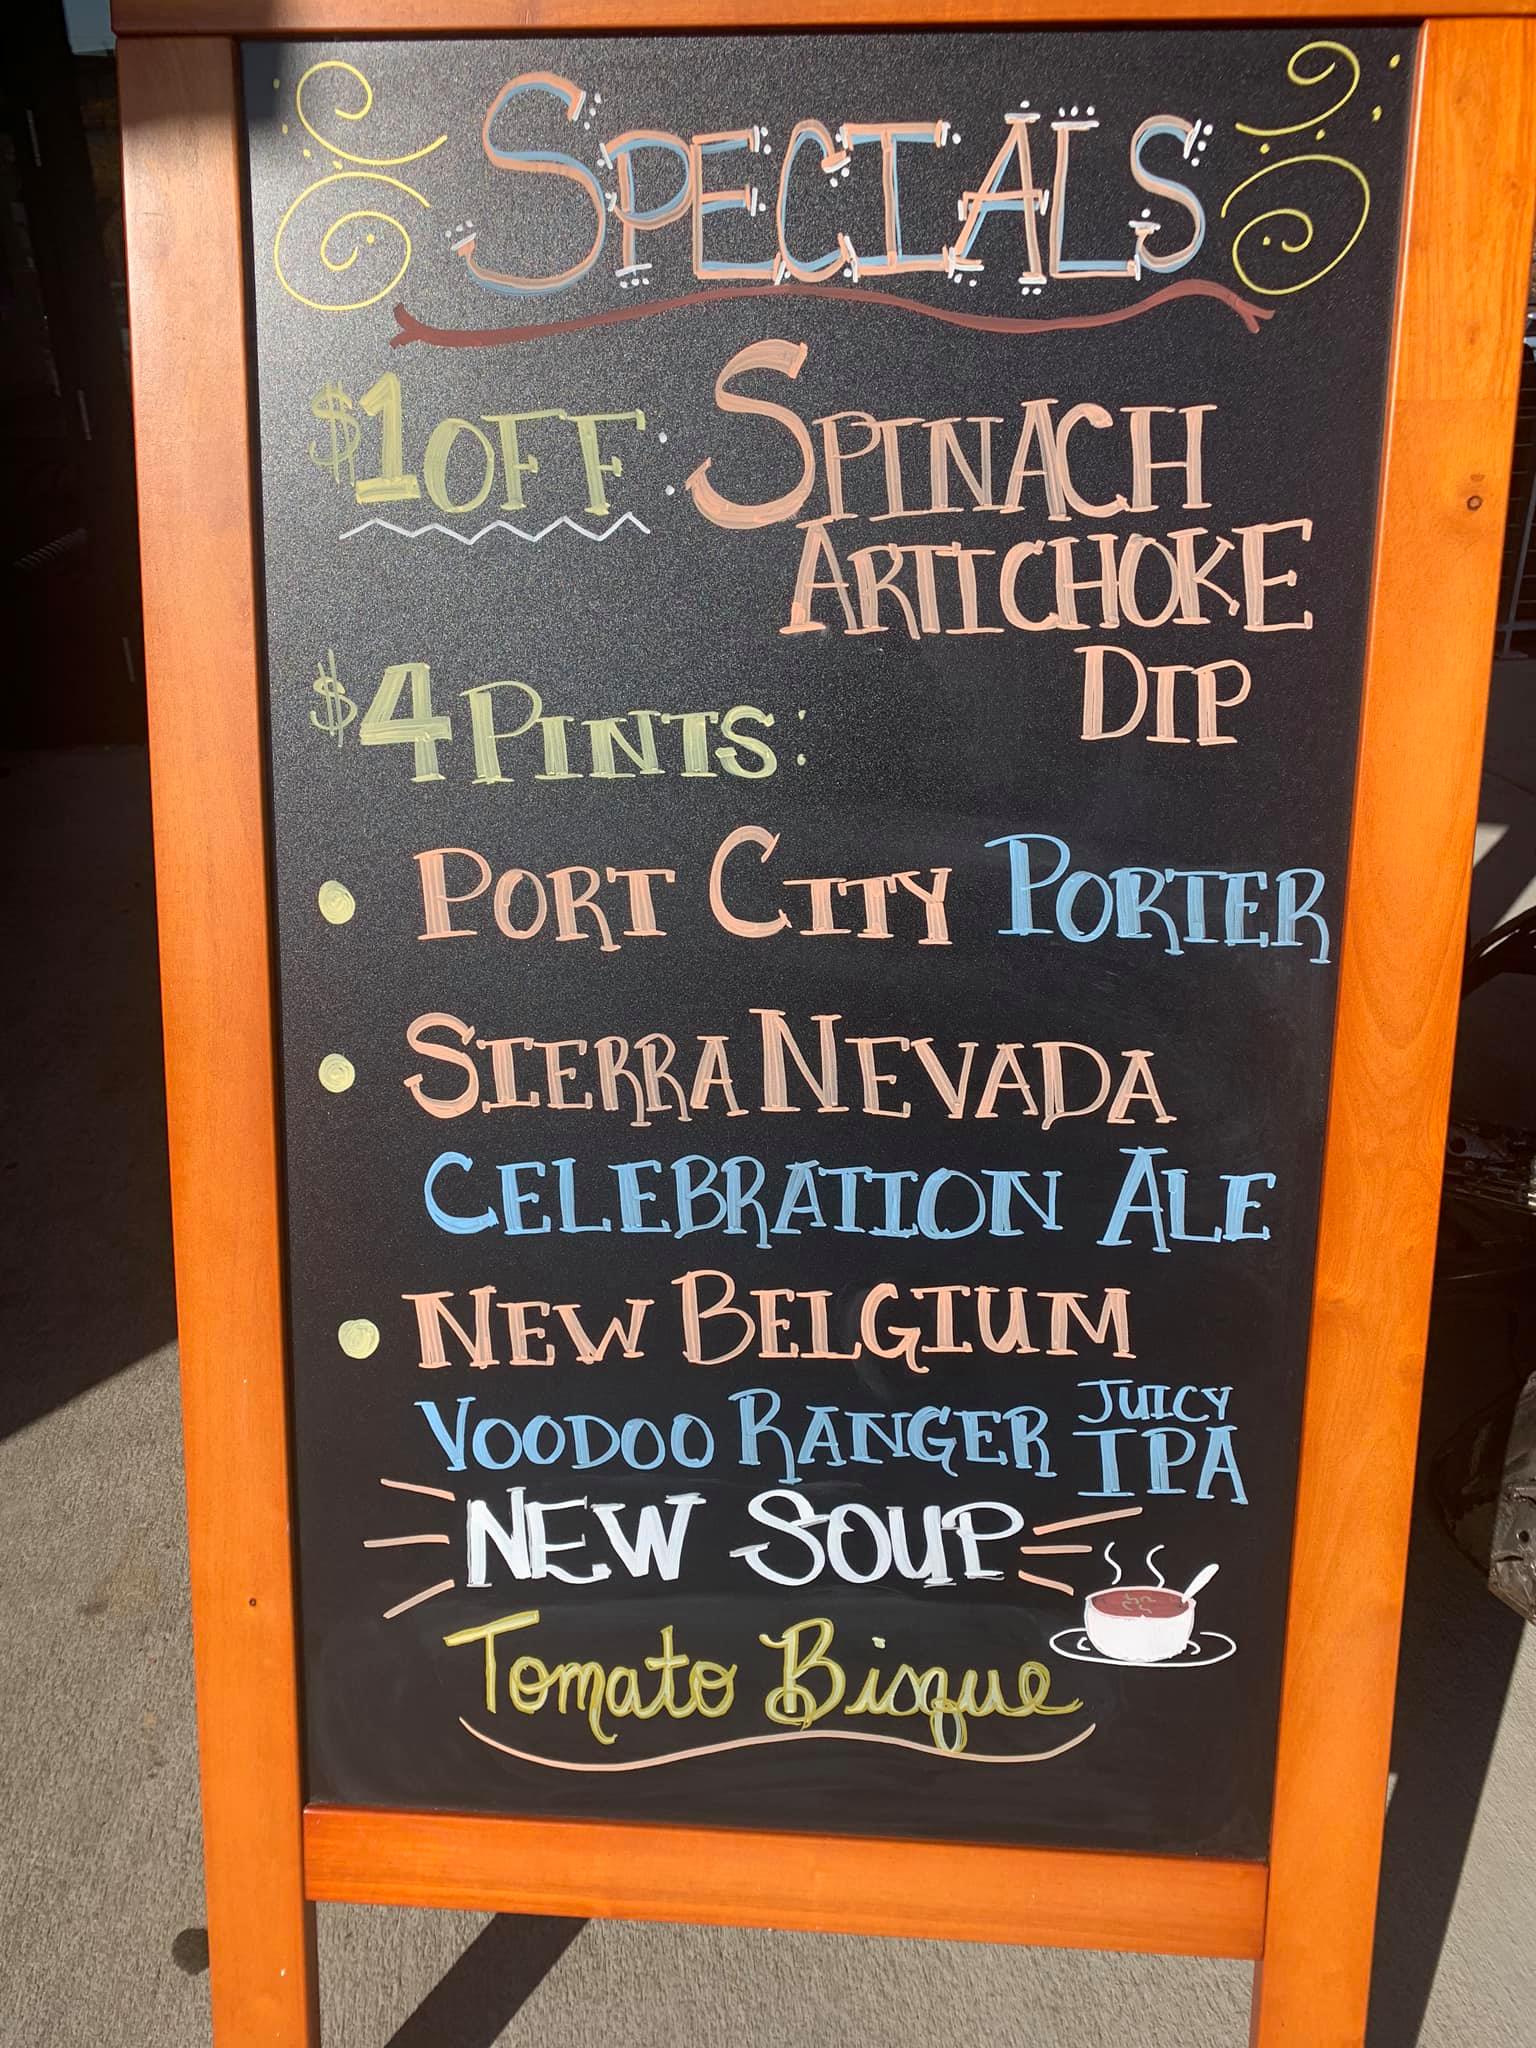 SPECIALS
$1 OFF: SPINACH
ARTICHOKE
DIP
$4 PINTS:
• PORT CITY PORTER
• SIERRA NEVADA
CELEBRATION ALE
• NEW BELGIUM
VOODOO RANGER JUICY
IPA
NEW SOUP
Tomato Bisque